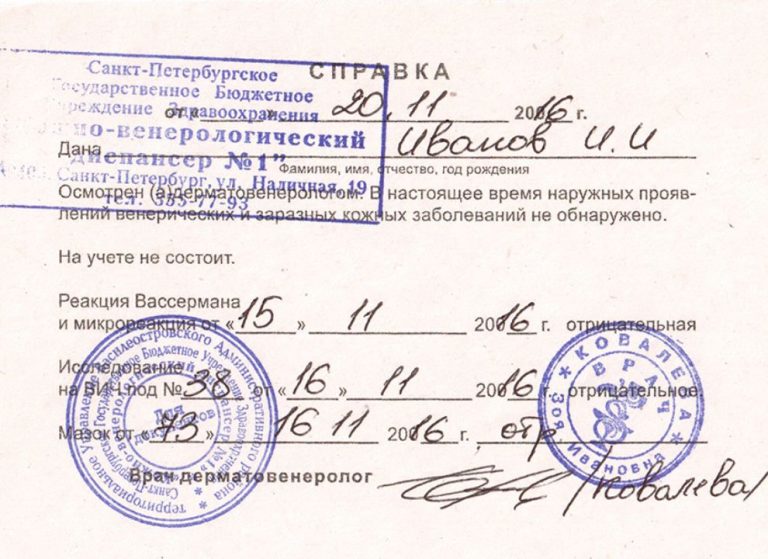 Санкт-Петербургское
Государственное Бюджетное
Учреждение Здравоохранения
венерологический
диспансер № 1"
Санкт-Петербург, ул. Наличная, 19
тел. 355-77-93
СПРАВКА
от « » 20.11 20016 г.
Дана Иванов И.И
Фамилия, имя, отчество, год рождения
Осмотрен (а) дерматовенерологом. В настоящее время наружных прояв-
лений венерических и заразных кожных заболеваний не обнаружено.
На учете не состоит.
Реакция Вассермана
и микрореакция от «15» 11 20016 г. отрицательная
Исследование
на ВИЧ под № 38 от «16» 11 20016 г. отрицательное.
Мазок от «73» 16 11 20016 г. отр.
Врач дерматовенеролог /Ковалева/
КОВАЛЕВА
Зоя Ивановна
ВРАЧ
Для документов